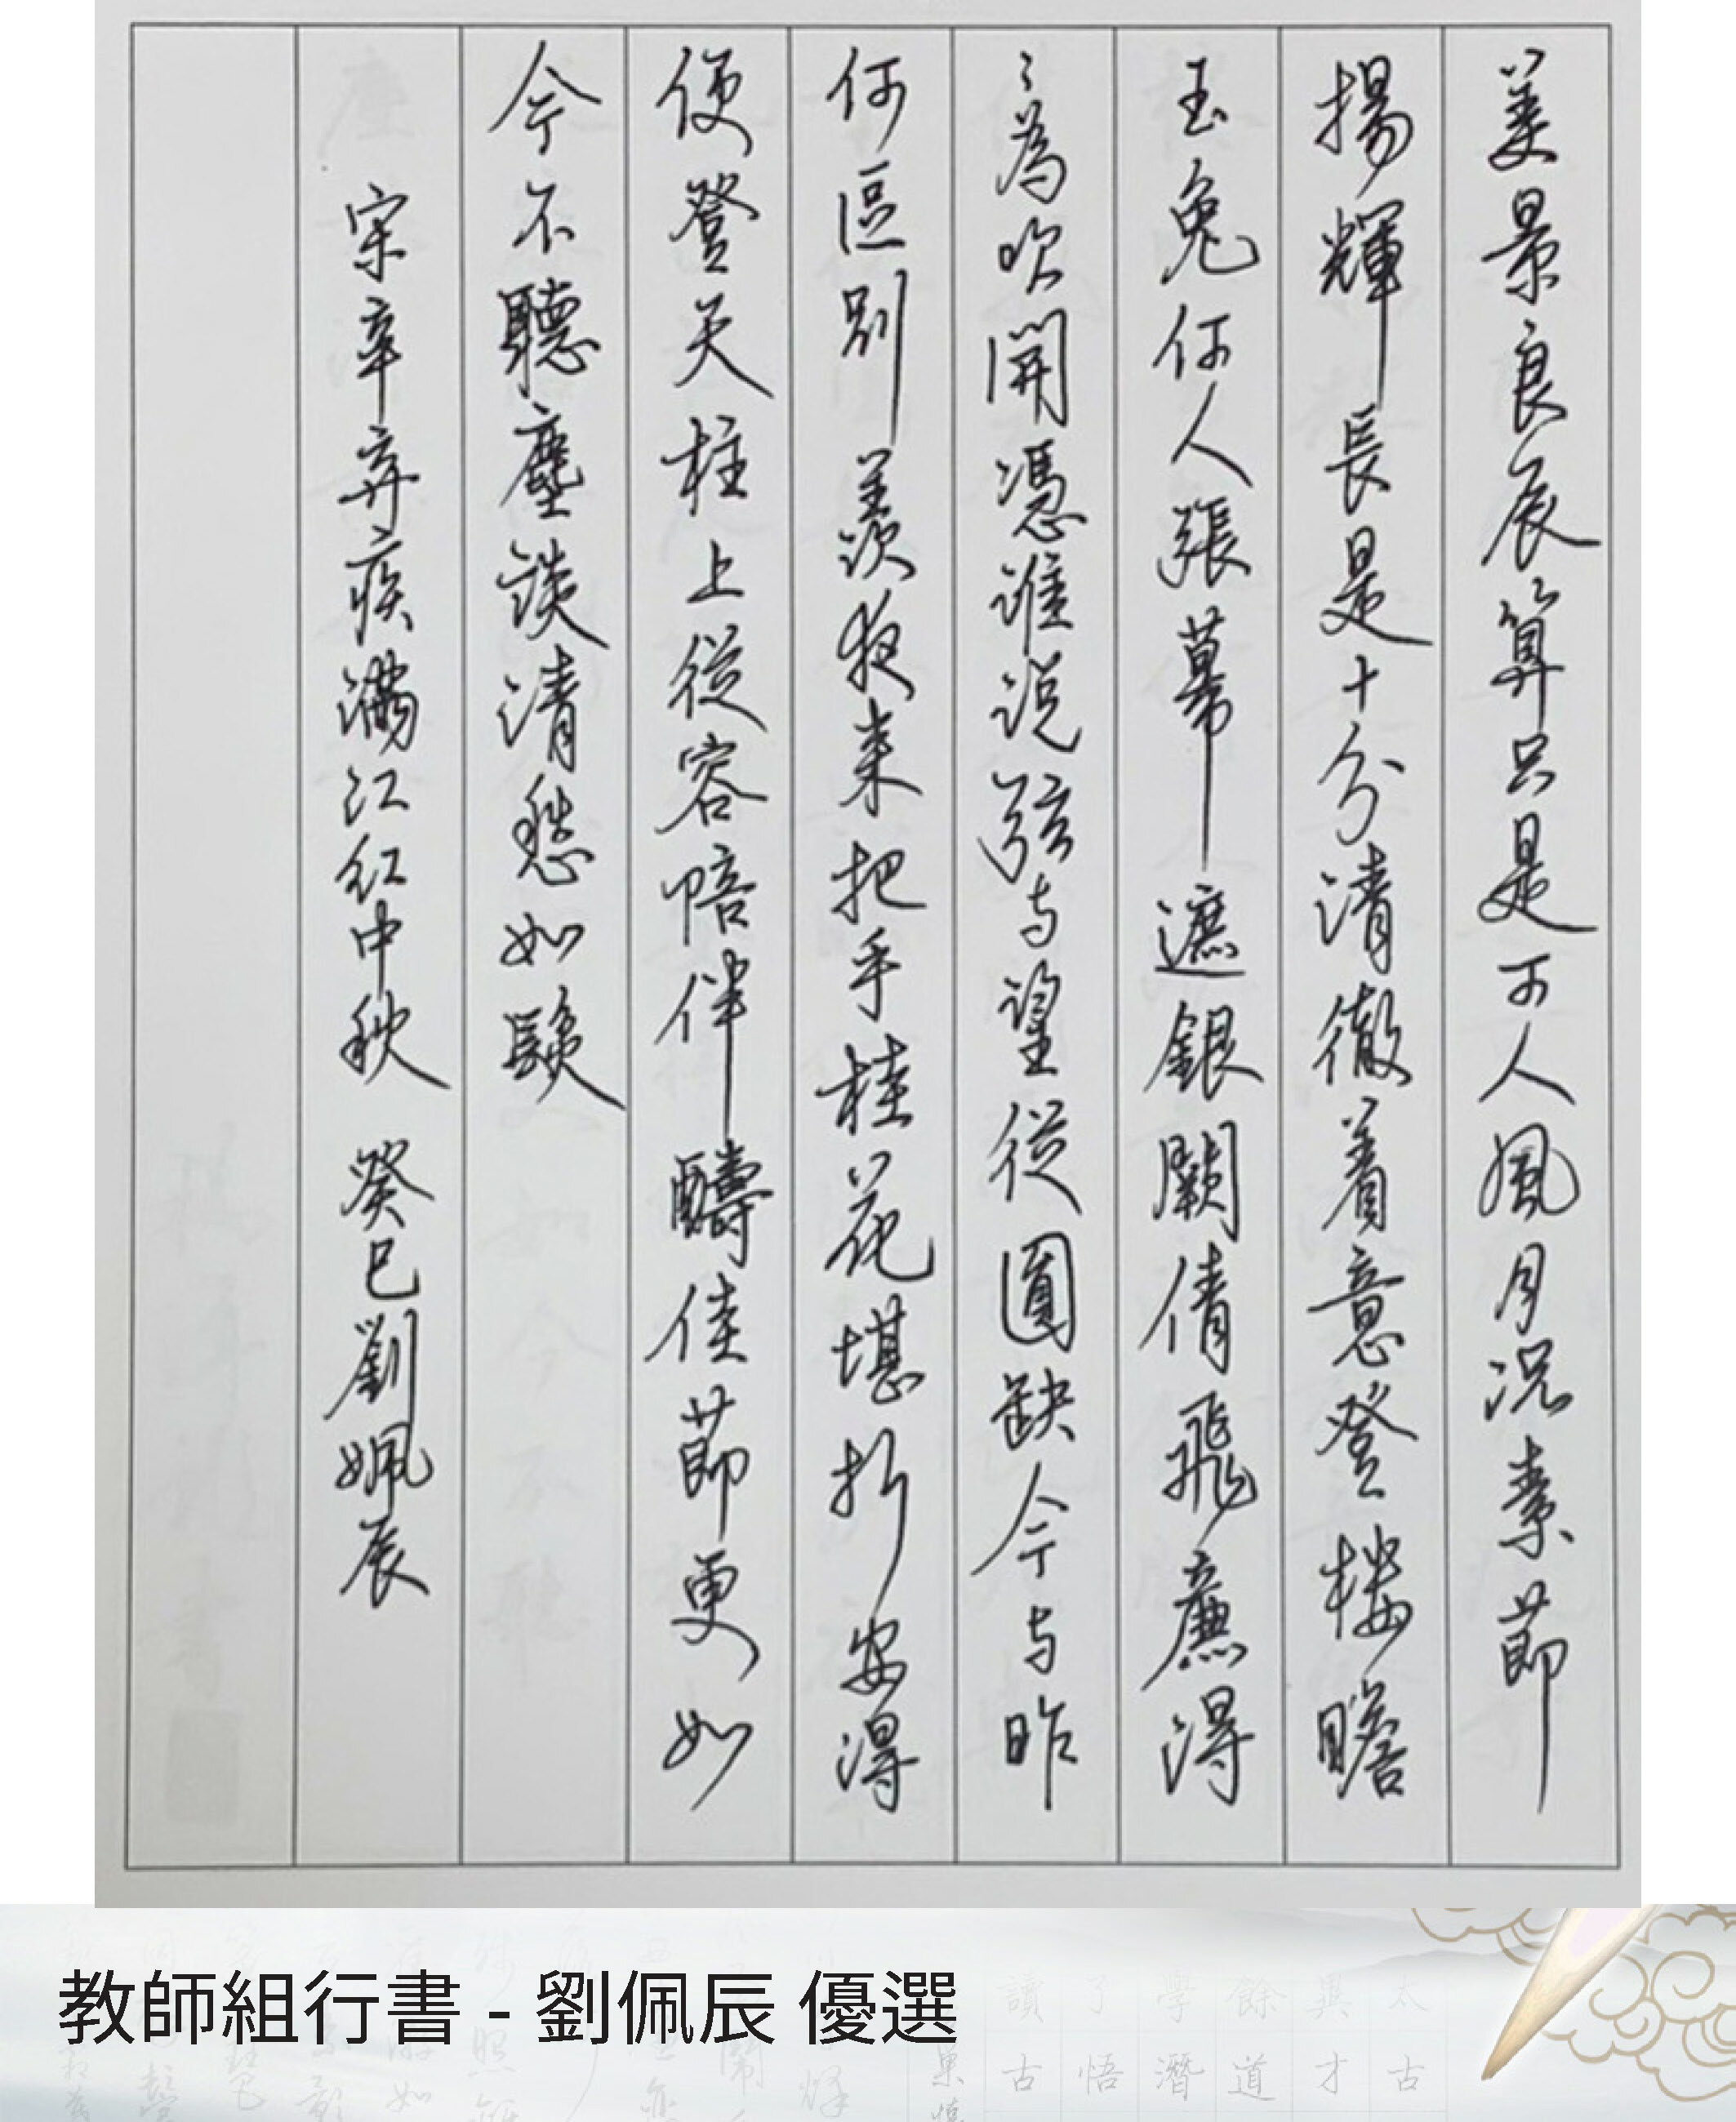 美景良辰算只是可人風月況素節
揚輝長是十分清徹着意登樓瞻
玉兔何人張幕遮銀闕倩飛廉得
得為吹開憑誰說弦与望從圓缺今与昨
何區別羨夜来把手桂花堪折安得
便登天柱上從容陪伴醻佳節更如
今不聽塵談清愁如髮
宋辛弃疾滿江紅中秋 癸巳劉姵辰
教師組行書 - 劉佩辰 優選
讀了學餘與太
古悟潛道才古